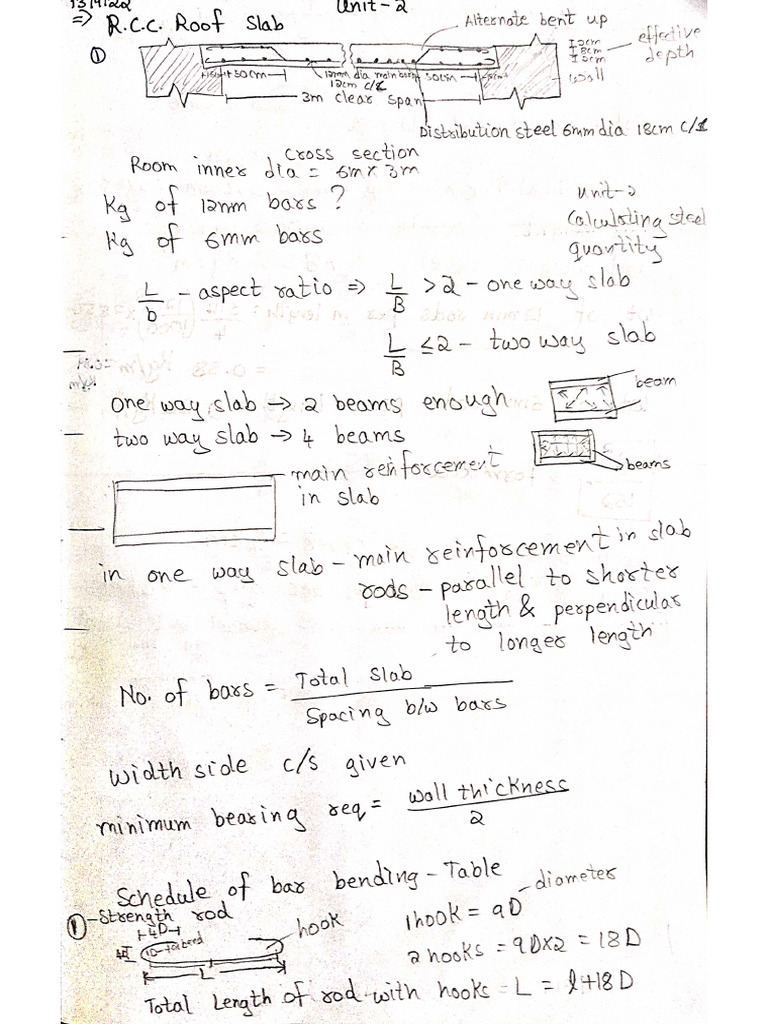 13/4/22
Unit-2
=> R.C.C. Roof Slab
Alternate bent up
①
2cm
8cm
2cm
effective
depth
wall
50cm
12mm dia main bars
12cm c/c
50cm
3m clear span
Distribution steel 6mm dia 18cm c/c
cross section
Room inner dia = 6m x 3m
Kg of 12mm bars ?
Kg of 6mm bars
Unit-2
Calculating steel
quantity
L/b - aspect ratio => L/B >2 - one way slab
L/B ≤2 - two way slab
one way slab -> 2 beams enough
beam
two way slab -> 4 beams
beams
main reinforcement
in slab
in one way slab - main reinforcement in slab
rods - parallel to shorter
length & perpendicular
to longer length
No. of bars = Total slab / Spacing b/w bars
width side c/s given
minimum bearing req = wall thickness / 2
Schedule of bar bending - Table
① - Strength rod
diameter
hook
1 hook = 9D
4D
2 hooks = 9D x 2 = 18D
L
Total Length of rod with hooks = L = l+18D